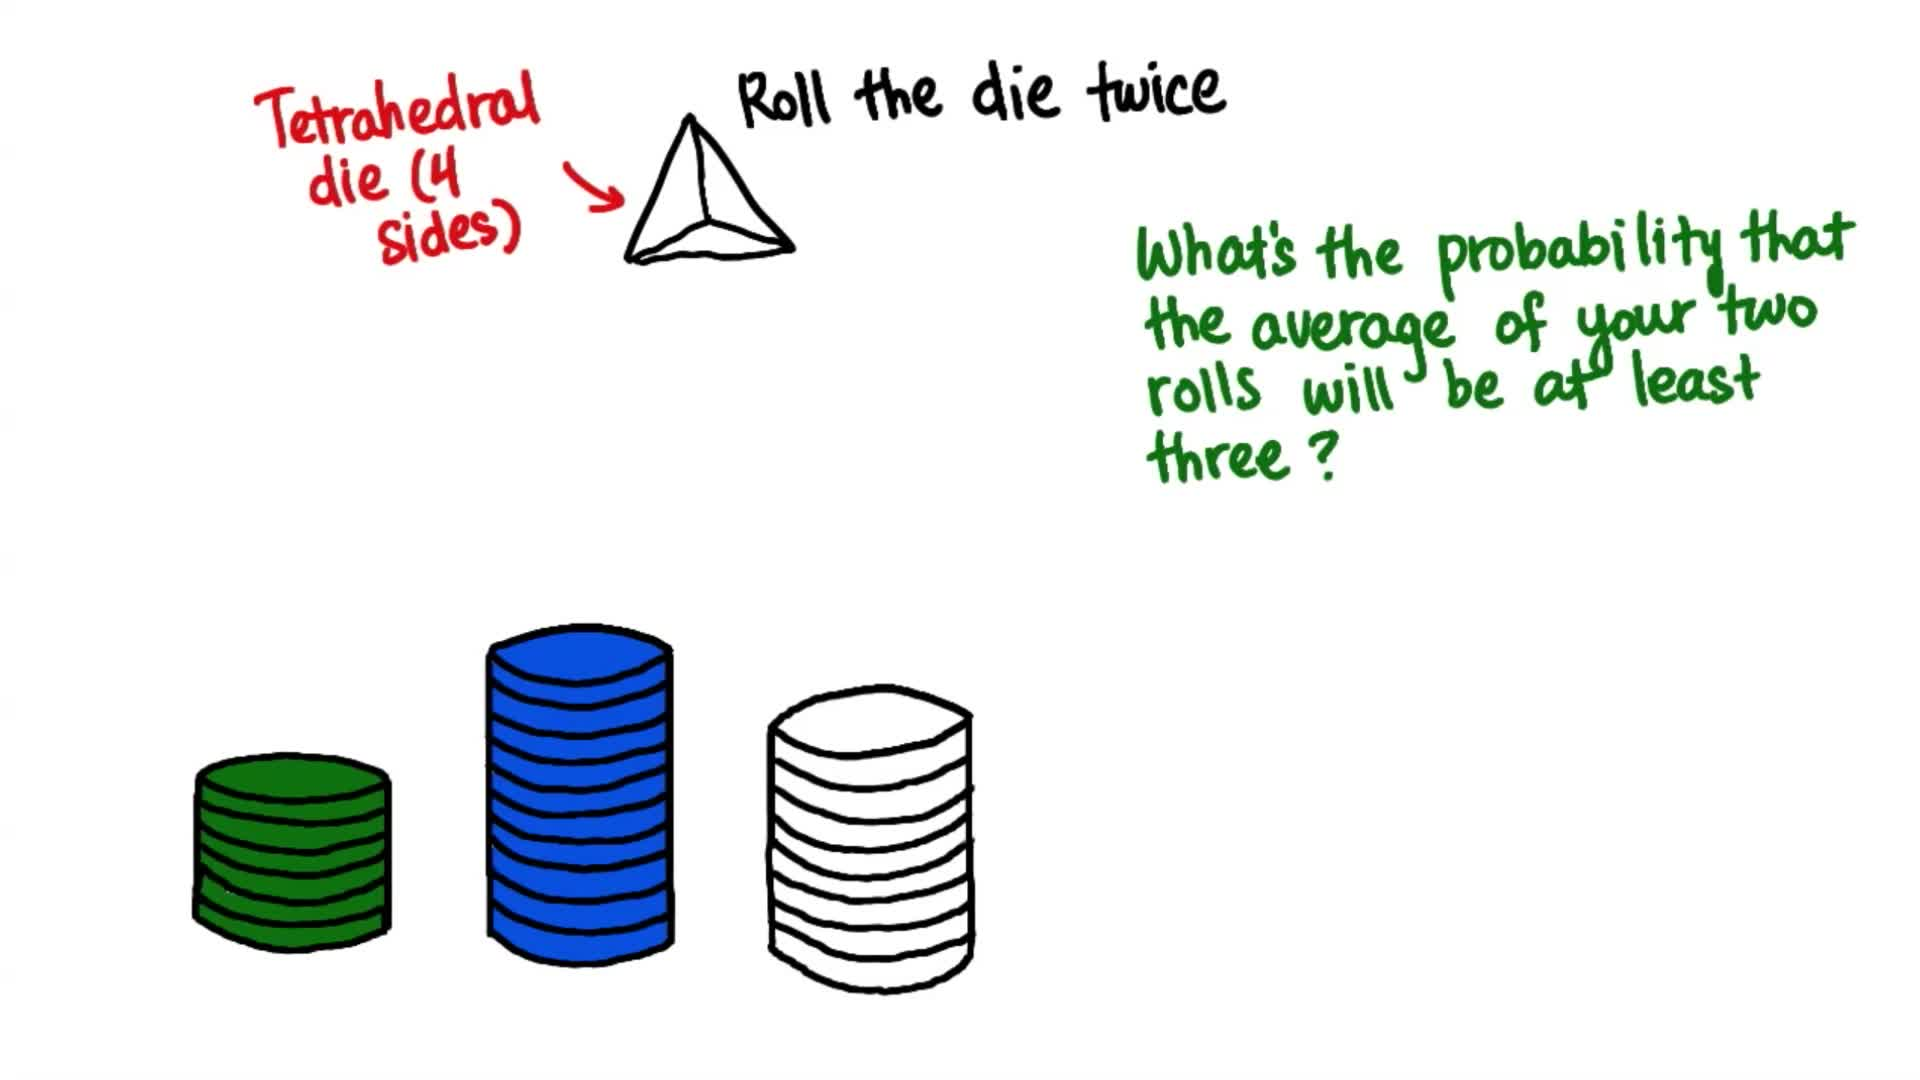 Tetrahedral
die (4
sides)
Roll the die twice
What's the probability that
the average of your two
rolls will be at least
three?